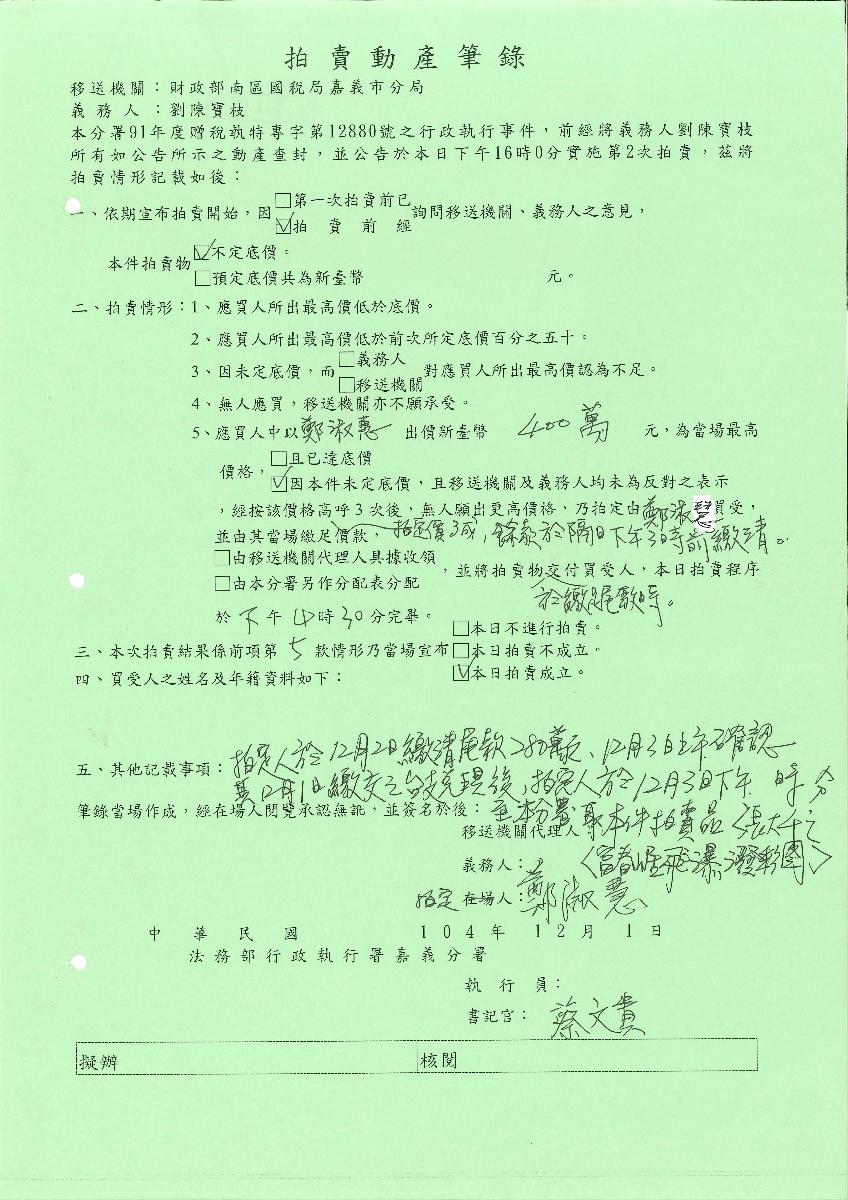 拍賣動產筆錄
移送機關：財政部南區國稅局嘉義市分局
義務人：劉陳寶枝
本分署91年度贈稅執特專字第12880號之行政執行事件，前經將義務人劉陳寶枝
所有如公告所示之動產查封，並公告於本日下午16時0分實施第2次拍賣，茲將
拍賣情形記載如後：
一、依期宣布拍賣開始，因□第一次拍賣前已
☑拍賣前經詢問移送機關、義務人之意見，
本件拍賣物☑不定底價。
□預定底價共為新臺幣 元。
二、拍賣情形：1、應買人所出最高價低於底價。
2、應買人所出最高價低於前次所定底價百分之五十。
3、因未定底價，而□義務人
□移送機關對應買人所出最高價認為不足。
4、無人應買，移送機關亦不願承受。
5、應買人中以鄭淑惠 出價新臺幣 400萬 元，為當場最高
價格，□且已達底價
☑因本件未定底價，且移送機關及義務人均未為反對之表示
，經按該價格高呼3次後，無人願出更高價格，乃拍定由鄭淑惠買受，
並由其當場繳足價款， 拍定價3成，餘款於隔日下午3時前繳清。
□由移送機關代理人具據收領
□由本分署另作分配表分配，並將拍賣物交付買受人，本日拍賣程序
於繳尾款時。
於下午4時30分完畢。
□本日不進行拍賣。
三、本次拍賣結果係前項第5款情形乃當場宣布□本日拍賣不成立。
☑本日拍賣成立。
四、買受人之姓名及年籍資料如下：
拍定人於12月2日繳清尾款280萬元、12月3日上午確認
五、其他記載事項：
其12月1日繳交之台支兌現後，拍定人於12月3日下午 時 分
筆錄當場作成，經在場人閱覽承認無訛，並簽名於後：
至本分署取本件拍賣品〈張大千之
移送機關代理人
〈富春 飛瀑潑彩圖〉
義務人：
拍定在場人：鄭淑惠
中華民國 104年12月1日
法務部行政執行署嘉義分署
執行員：
書記官：蔡文貴
擬辦 核閱